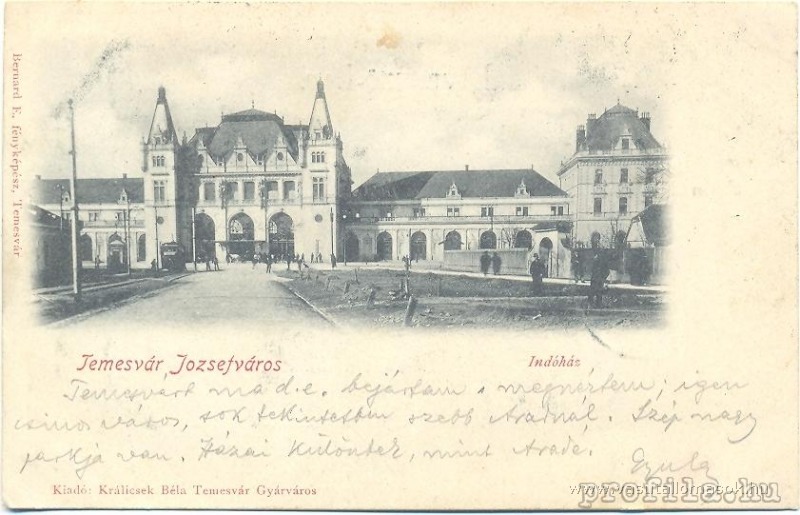 Bernard F., fényképész, Temesvár
Temesvár Jozsefváros
Indóház
Temesvárt ma d.e. bejártam s megnéztem; igen
csinos város, sok tekintetben szebb Aradnál. Szép nagy
parkja van. Házai különbek, mint Arade.
Gyula
Kiadó: Králicsek Béla Temesvár Gyárváros
www.vasutallomasok.hu
profila.hu